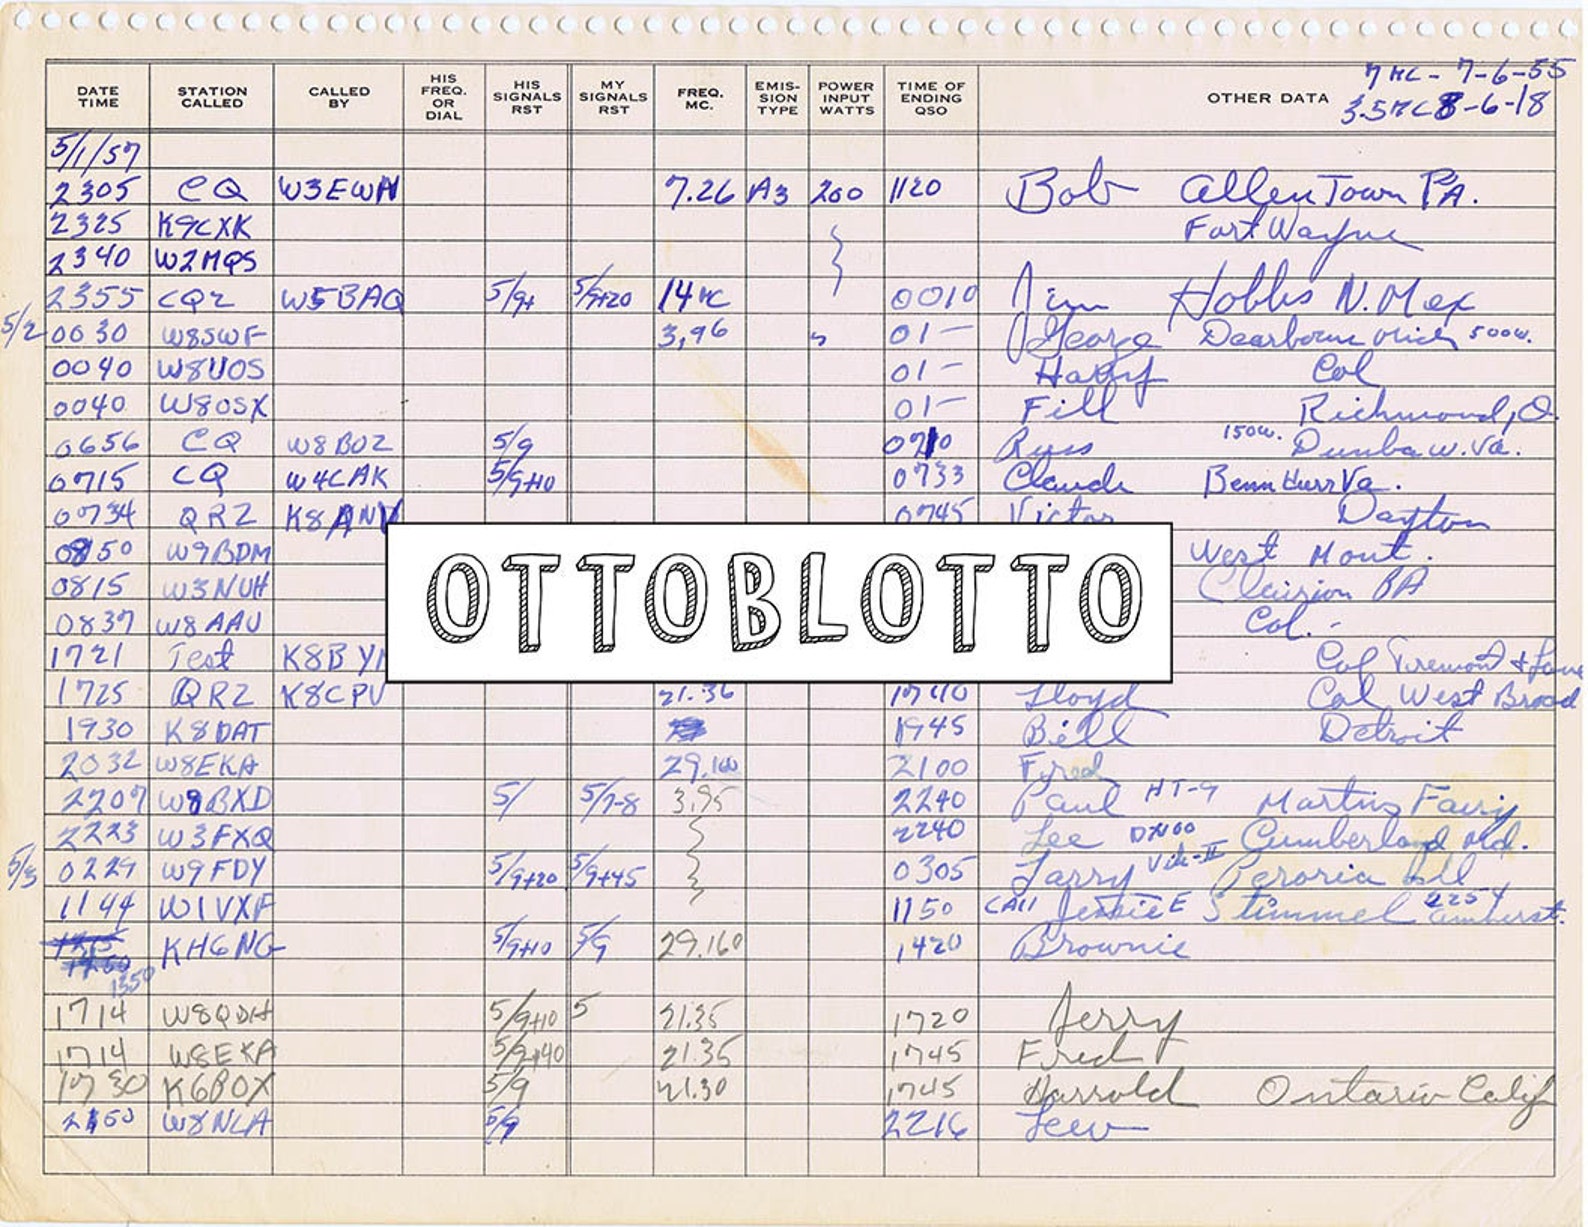 7 MC - 7-6-55
3.5 MC 8-6-18
DATE TIME STATION CALLED CALLED BY HIS FREQ. OR DIAL HIS SIGNALS RST MY SIGNALS RST FREQ. MC. EMIS-SION TYPE POWER INPUT WATTS TIME OF ENDING QSO OTHER DATA
5/1/57
2305 CQ W3EWN 7.26 A3 200 1120 Bob Allentown PA.
2325 K9CXK Fort Wayne
2340 W2MQS
2355 CQZ W5BAQ 5/9+ 5/9+20 14 MC 0010 Jim Hobbs N. Mex
5/2 0030 W8SWF 3,96 " 01— George Dearborn Mich 500W.
0040 W8UOS 01— Harry Col
0040 W8OSX 01— Fill Richmond, O.
0656 CQ W8BOZ 5/9 0710 Russ 150W. Dunba W. Va.
0715 CQ W4CAK 5/9+10 0733 Claude Benn Hurr Va.
0734 QRZ K8ANV 0745 Victor Dayton
0850 W9BDM West Mont.
0815 W3NUH Clairion PA
0837 W8AAU Col. -
1721 Test K8BY Col Tremont +
OTTOBLOTTO
1725 QRZ K8CPV 21.36 1740 Lloyd Col West Broad
1930 K8DAT 1945 Bill Detroit
2032 W8EKA 29.160 2100 Fred
2207 W8BXD 5/ 5/7-8 3.95 2240 Paul HT-9 Martins Fairy
2223 W3FXQ 2240 Lee DX100 Cumberland Md.
5/3 0229 W9FDY 5/9+20 5/9+45 0305 Larry Vik-II Peroria Ill
1144 W1VXF 1150 CAll Jessie E Stimmel 2254 Amherst.
1350 KH6NG 5/9+10 5/9 29.160 1420 Brownie
1714 W8QDH 5/9+10 5 21.35 1720 Jerry
1714 W8EKA 5/9+40 21.35 1745 Fred
1730 K6BOX 5/9 21.30 1745 Harrold Ontario Calif
2150 W8NLA 5/9 2216 Lew